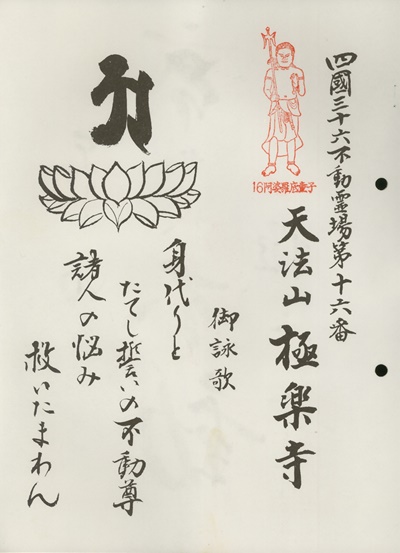 四國三十六不動霊場第十六番
16阿婆羅底童子
天法山 極楽寺
御詠歌
身代りと
たてし誓いの不動尊
諸人の悩み
救いたまわん